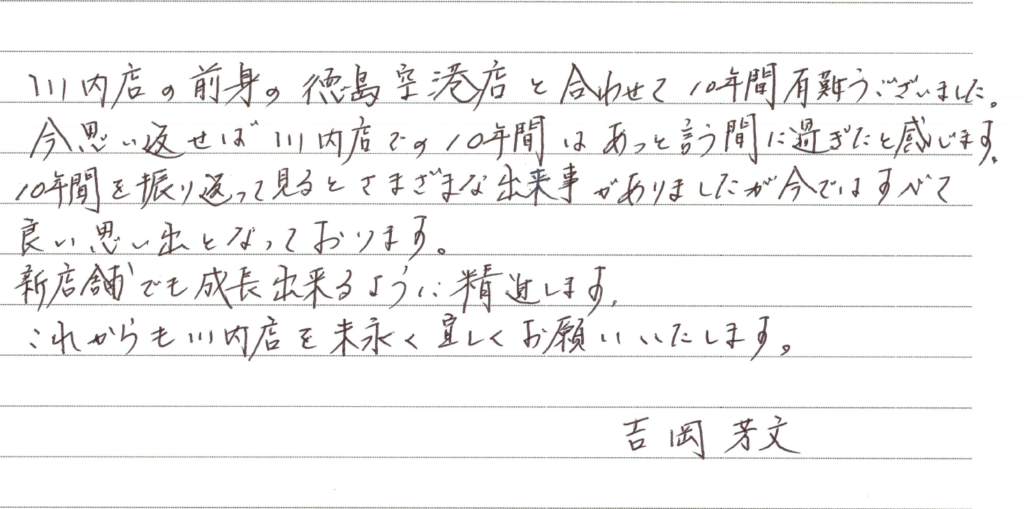 川内店の前身の徳島空港店と合わせて10年間有難うございました。
今思い返せば川内店での10年間はあっと言う間に過ぎたと感じます。
10年間を振り返って見るとさまざまな出来事がありましたが今ではすべて
良い思い出となっております。
新店舗でも成長出来るように精進します。
これからも川内店を末永く宜しくお願いいたします。
吉岡芳文